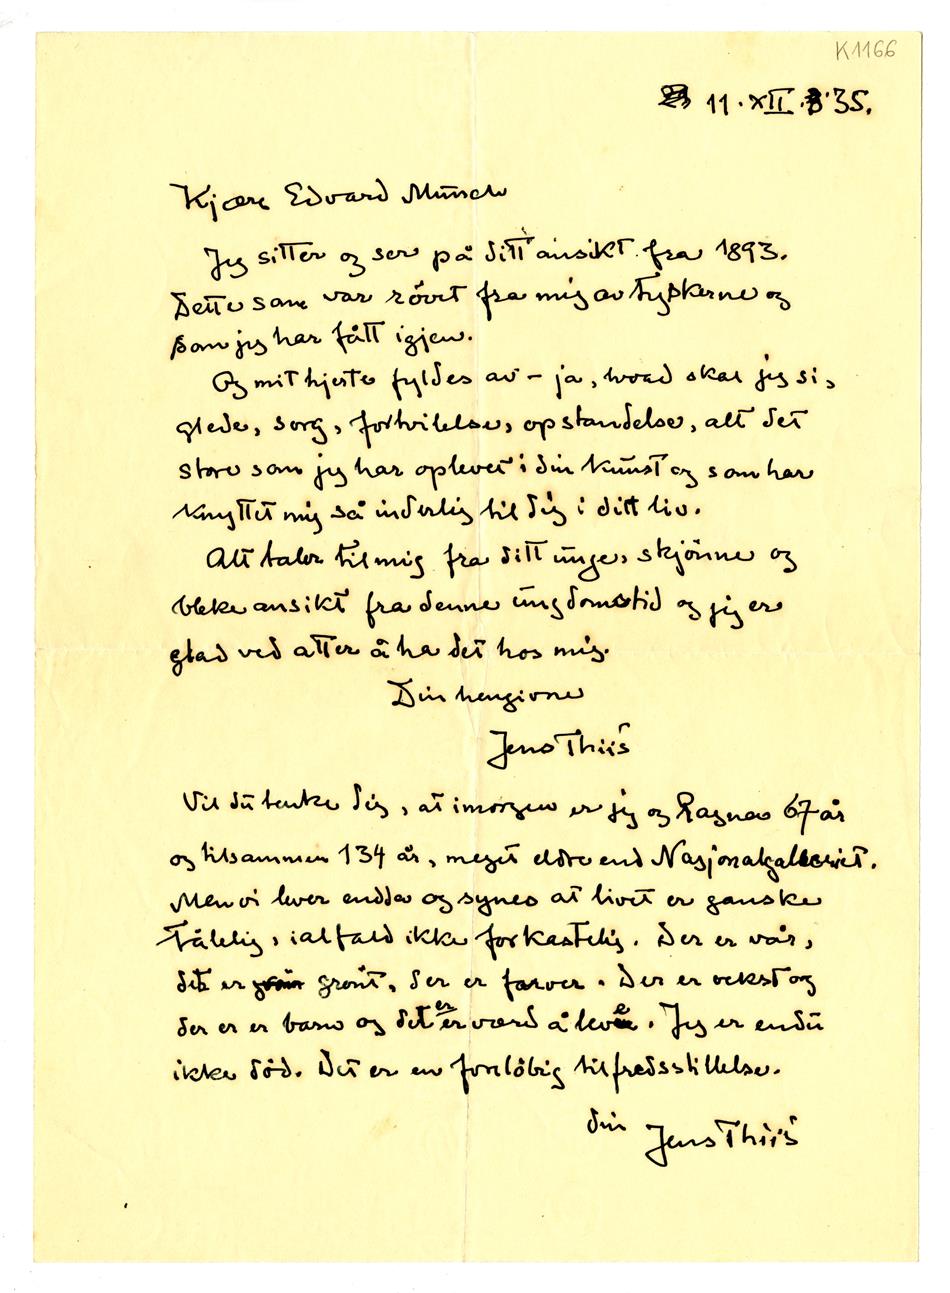 K1166
11.XII.35.
Kjære Edvard Munch
Jeg sitter og ser på ditt ansikt fra 1893.
Dette som var rövet fra mig av tyskerne og
som jeg har fått igjen.
Og mit hjerte fyldes av – ja, hvad skal jeg si,
glede, sorg, fortvilelse, opstandelse, alt det
store som jeg har oplevet i din kunst og som har
knyttet mig så inderlig til dig i ditt liv.
Alt taler til mig fra ditt unge, skjönne og
bleke ansikt fra denne ungdomstid og jeg er
glad ved atter å ha det hos mig.
Din hengivne
Jens Thiis
Vil du tenke dig, at imorgen er jeg og Ragna 67 år
og tilsammen 134 år, meget eldre end Nasjonalgalleriet.
Men vi lever endda og synes at livet er ganske
tålelig, ialfald ikke forkastelig. Der er vår,
det er grönt, der er farver. Der er vekst og
der er er barn og det er værd å leve. Jeg er endu
ikke död. Det er en forelöbig tilfredsstillelse.
din Jens Thiis